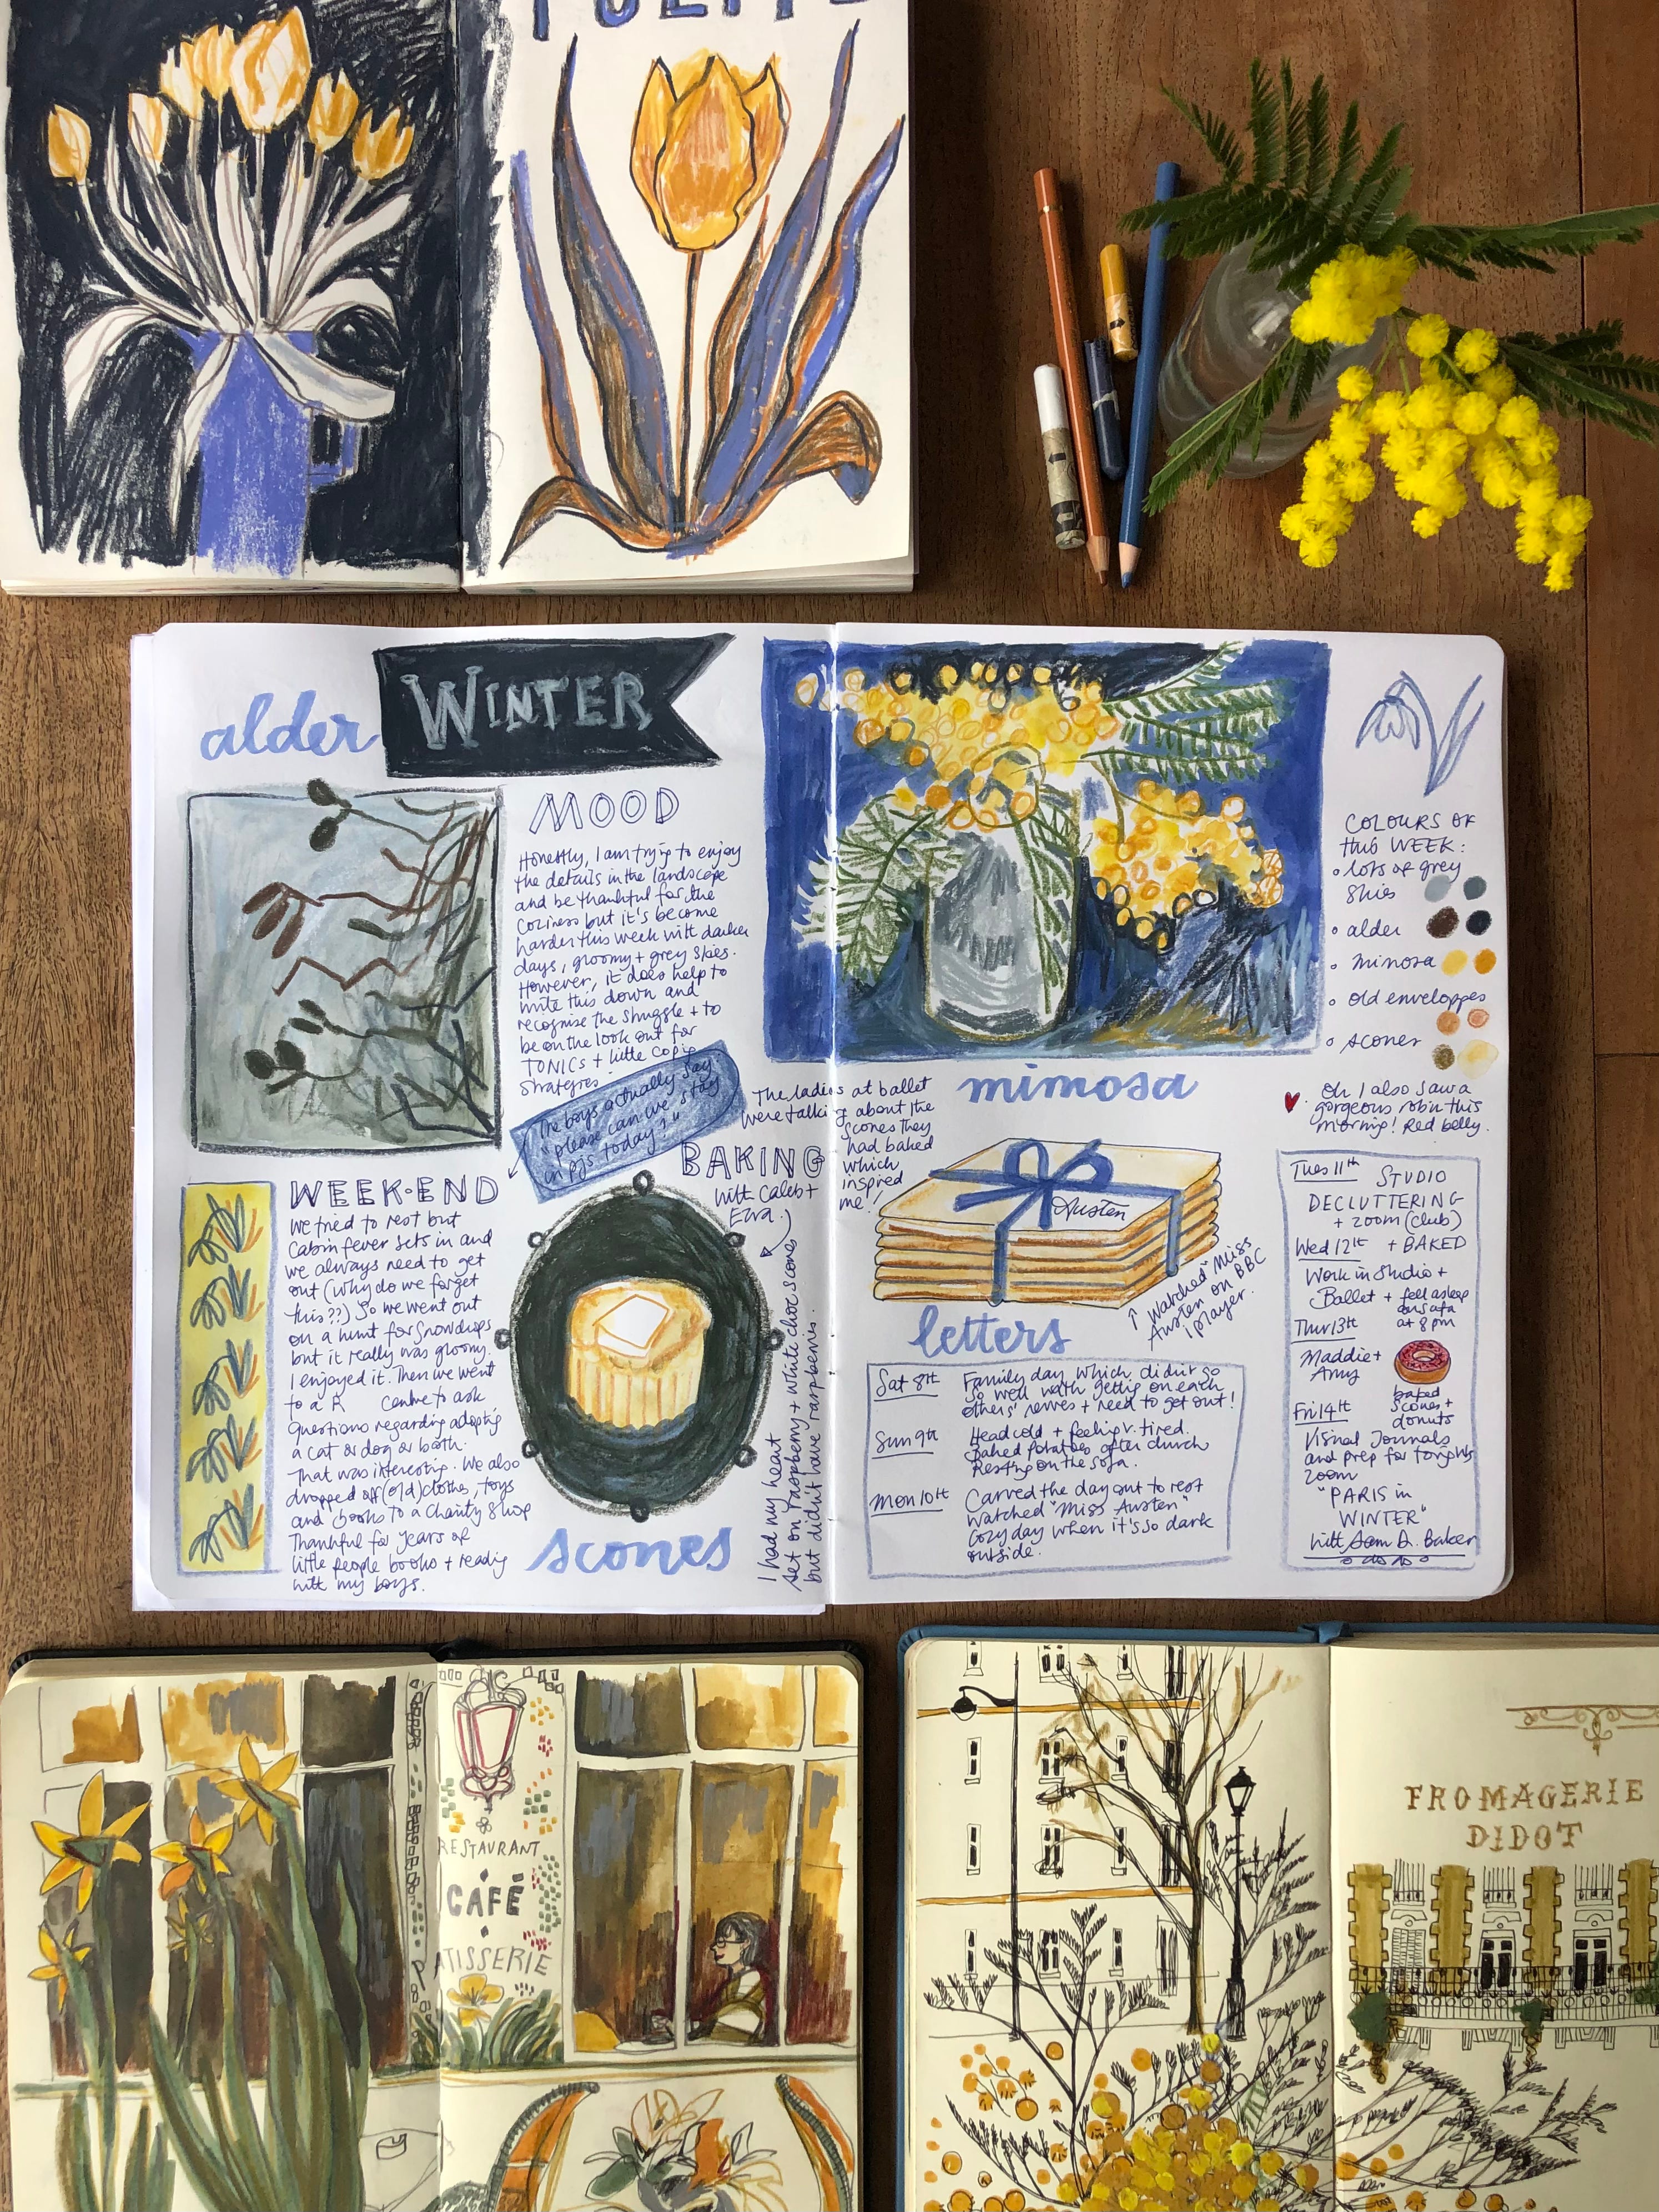 alder
WINTER
MOOD
Honestly, I am trying to enjoy
the details in the landscape
and be thankful for the
coziness but it's become
harder this week with darker
days, gloomy + grey skies.
However, it does help to
write this down and
recognise the struggle + to
be on the look out for
TONICS + little coping
strategies.
The boys actually say
"please can we stay
in PJs today?"
WEEK-END
We tried to rest but
Cabin fever sets in and
we always need to get
out (why do we forget
this??) So we went out
on a hunt for snowdrops
but it really was gloomy.
I enjoyed it. Then we went
to a R Centre to ask
questions regarding adopting
a cat or dog or both.
That was interesting. We also
dropped off (old) clothes, toys
and books to a charity shop
Thankful for years of
little people books + reading
with my boys.
BAKING
with Caleb +
Ezra.
scones
I had my heart
set on raspberry + white choc scones
but didn't have raspberries.
The ladies at ballet
were talking about the
scones they
had baked
which
inspired
me!
mimosa
Austen
letters
↑ Watched "Miss
Austen on BBC
iplayer.
Sat 8th Family day which didn't go
so well with getting on each
others' nerves + need to get out!
Sun 9th Head cold + feeling v. tired.
Baked potatoes after church
Resting on the sofa.
Mon 10th Carved the day out to rest
Watched "Miss Austen"
Cozy day when it's so dark
outside.
COLOURS OF
this WEEK:
• lots of grey
skies
• alder
• mimosa
• old enveloppes
• scones
Oh I also saw a
gorgeous robin this
morning! Red belly.
Tues 11th STUDIO
DECLUTTERING
+ zoom (club)
Wed 12th + BAKED
Work in Studio +
Ballet + fell asleep
on sofa
at 8pm
Thur 13th
Maddie +
Amy
baked
scones +
donuts
Fri 14th
Visual Journals
and prep for tonight's
zoom
"PARIS in
WINTER"
with Sam D. Baker
RESTAURANT
CAFÉ
ATISSERIE
FROMAGERIE
DIDOT